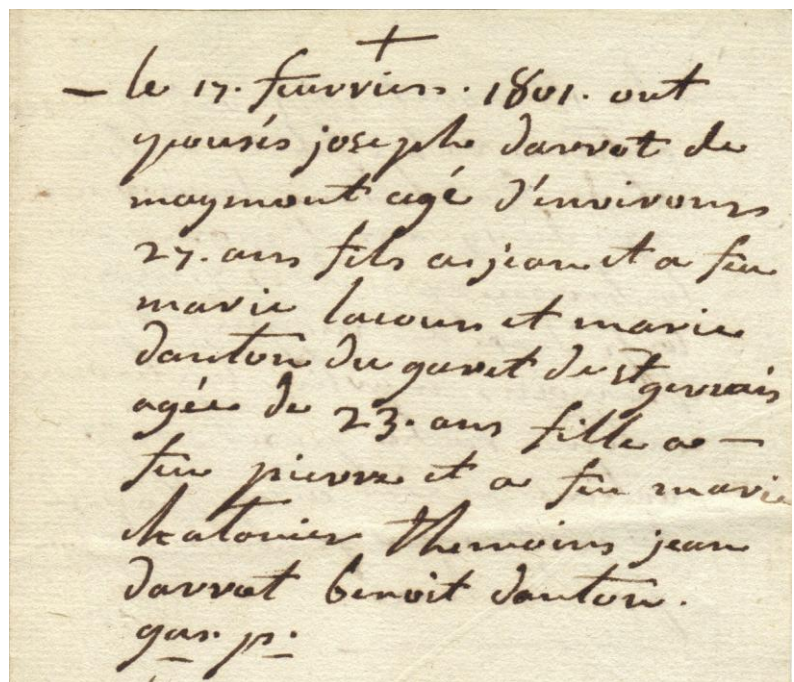 +
– le 17. feuvrier. 1801. ont
epousés joseph darrot de
maymont agé d'environs
27. ans fils a jean et a feu
marie lacour et marie
dauton du gavet de st gervais
agée de 23. ans fille a –
feu pierre et a feu marie
chatonier themoins jean
darrot benoit dauton.
gas. p.